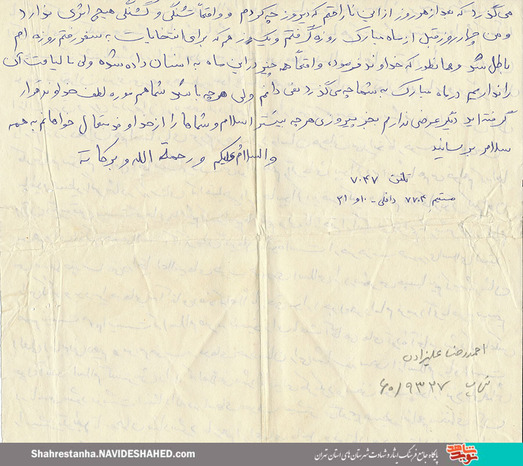 می‌گذرد که بعد از هر روز از این ناراحتم که دیروز چه کردم و واقعاً تشنگی و گشنگی هیچ اثری ندارد
و من چهار روز قبل از ماه مبارک روزه گرفتم و یک روز هم که برای انتخابات به سفر رفتم روزه ام
باطل شد و همانطور که خداوند فرموده واقعاً همه چیز در این ماه به انسان داده شده ولی ما لیاقت آن
را نداریم در ماه مبارک به شما چه می‌گذرد نمی دانم ولی هر چه باشد شما هم مورد لطف خداوند قرار
گرفته اید دیگر عرضی ندارم بجز پیروزی هر چه بیشتر اسلام و شماها را از خداوند متعال خواهانم به همه
سلام برسانید
والسلام علیکم و رحمة الله و برکاته
تلفن ۷۰۴۷
مستقیم ۷۷۰۴ داخلی - ۱۰ و ۲۱
احمدرضا علیزاده
۶۰/۹۳۲۷
Shahrestanha.NAVIDESHAHED.com
پایگاه جامع فرهنگ ایثار و شهادت شهرستان های استان تهران
نوید شاهد